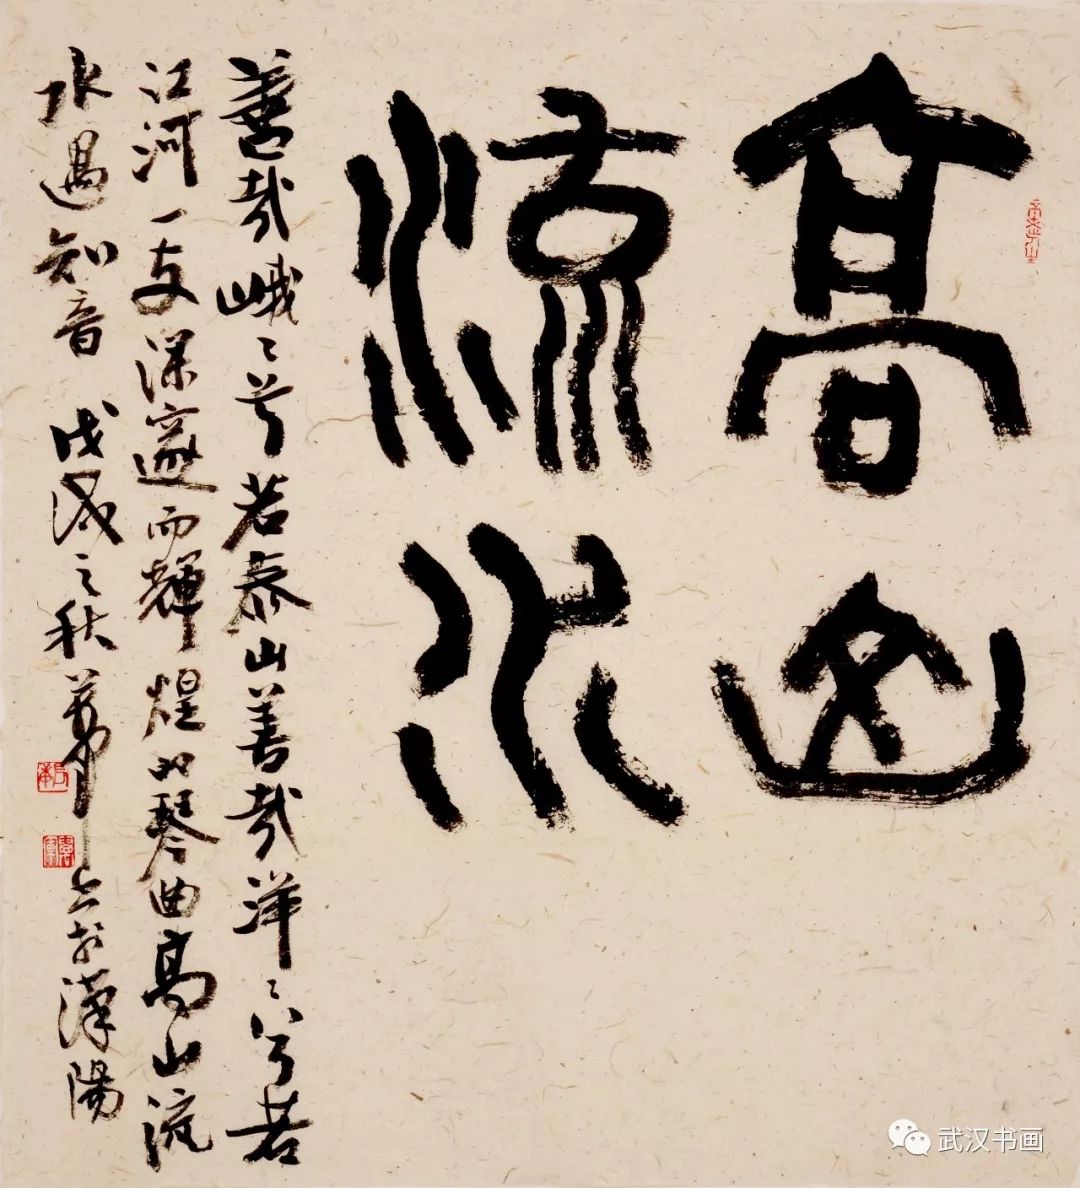 高山
流水
善哉峨峨兮若泰山善哉洋洋兮若
江河一支深邃而辉煌的琴曲高山流
水遇知音 戊戌之秋 军 于汉阳
武汉书画